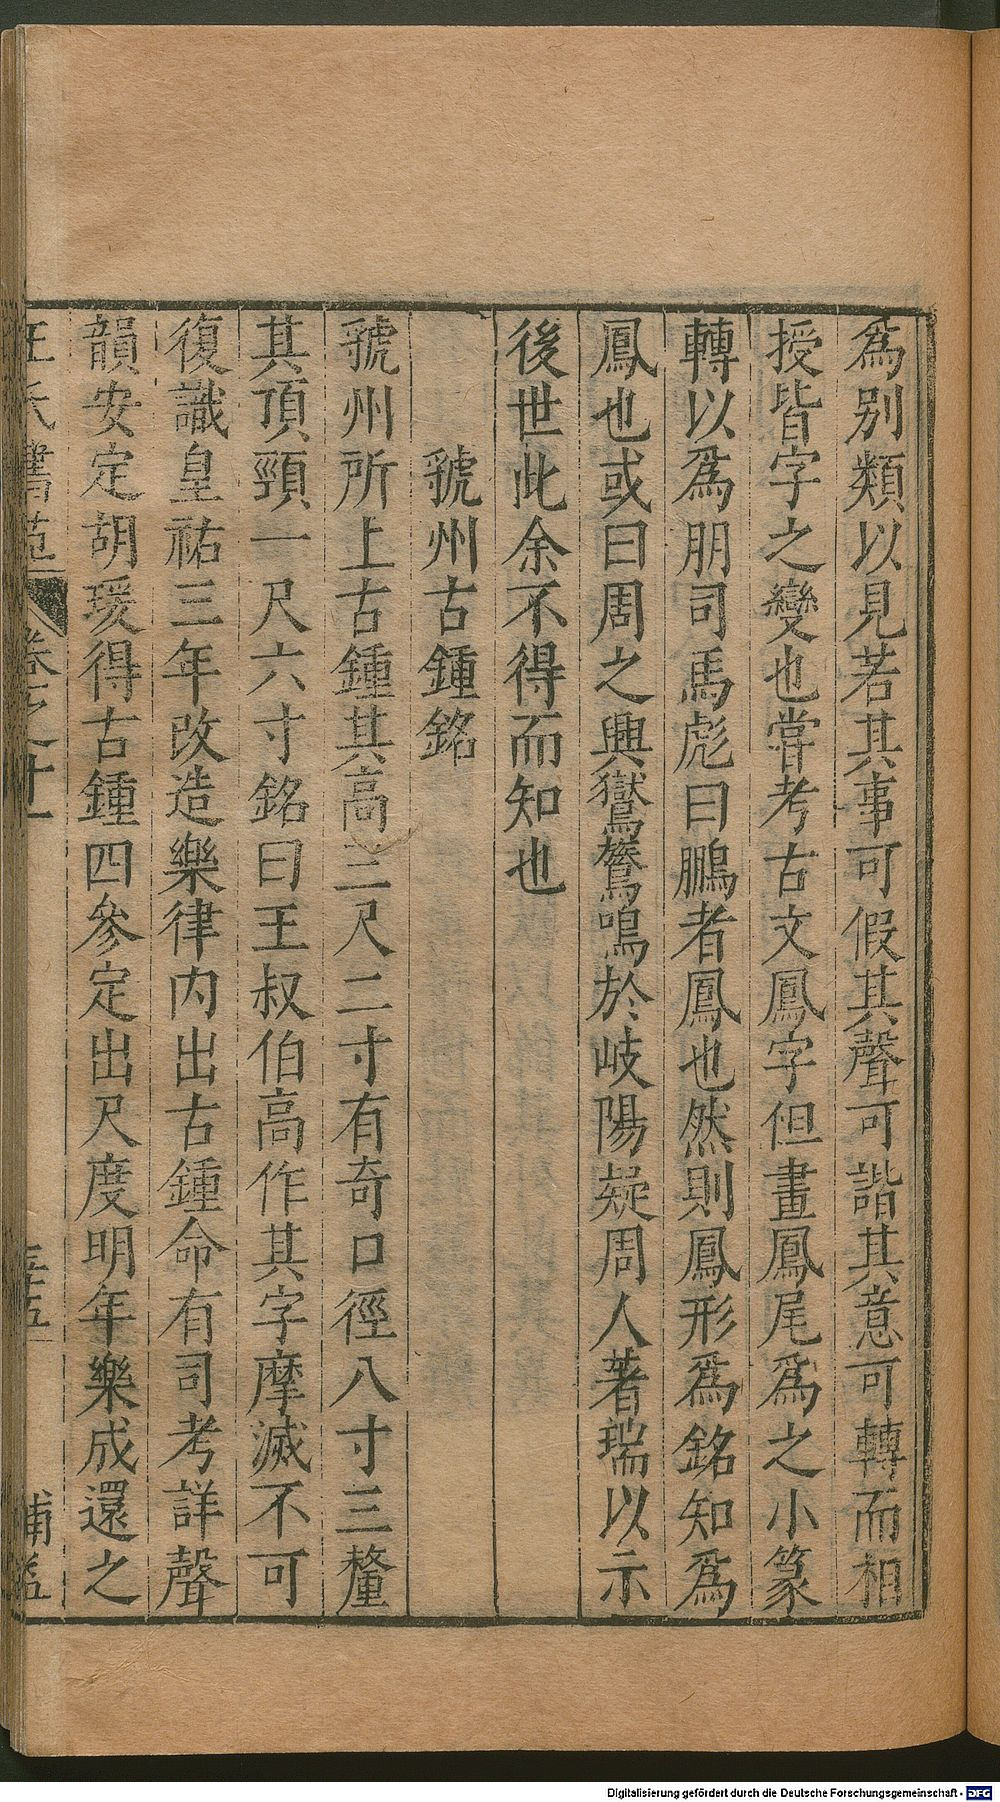 爲別類以見若其事可假其聲可諧其意可轉而相
授皆字之變也嘗考古文鳳字但畫鳳尾爲之小篆
轉以爲朋司馬彪曰鵬者鳳也然則鳳形爲銘知爲
鳳也或曰周之興鸑鷟鳴於岐陽疑周人著瑞以示
後世此余不得而知也
虢州古鍾銘
虢州所上古鍾其高三尺二寸有奇口徑八寸三釐
其頂頸一尺六寸銘曰王叔伯高作其字摩滅不可
復識皇祐三年改造樂律內出古鍾命有司考詳聲
韻安定胡瑗得古鍾四參定出尺度明年樂成還之
王氏書苑 卷之十一 三十五 補益
Digitalisierung gefördert durch die Deutsche Forschungsgemeinschaft - DFG